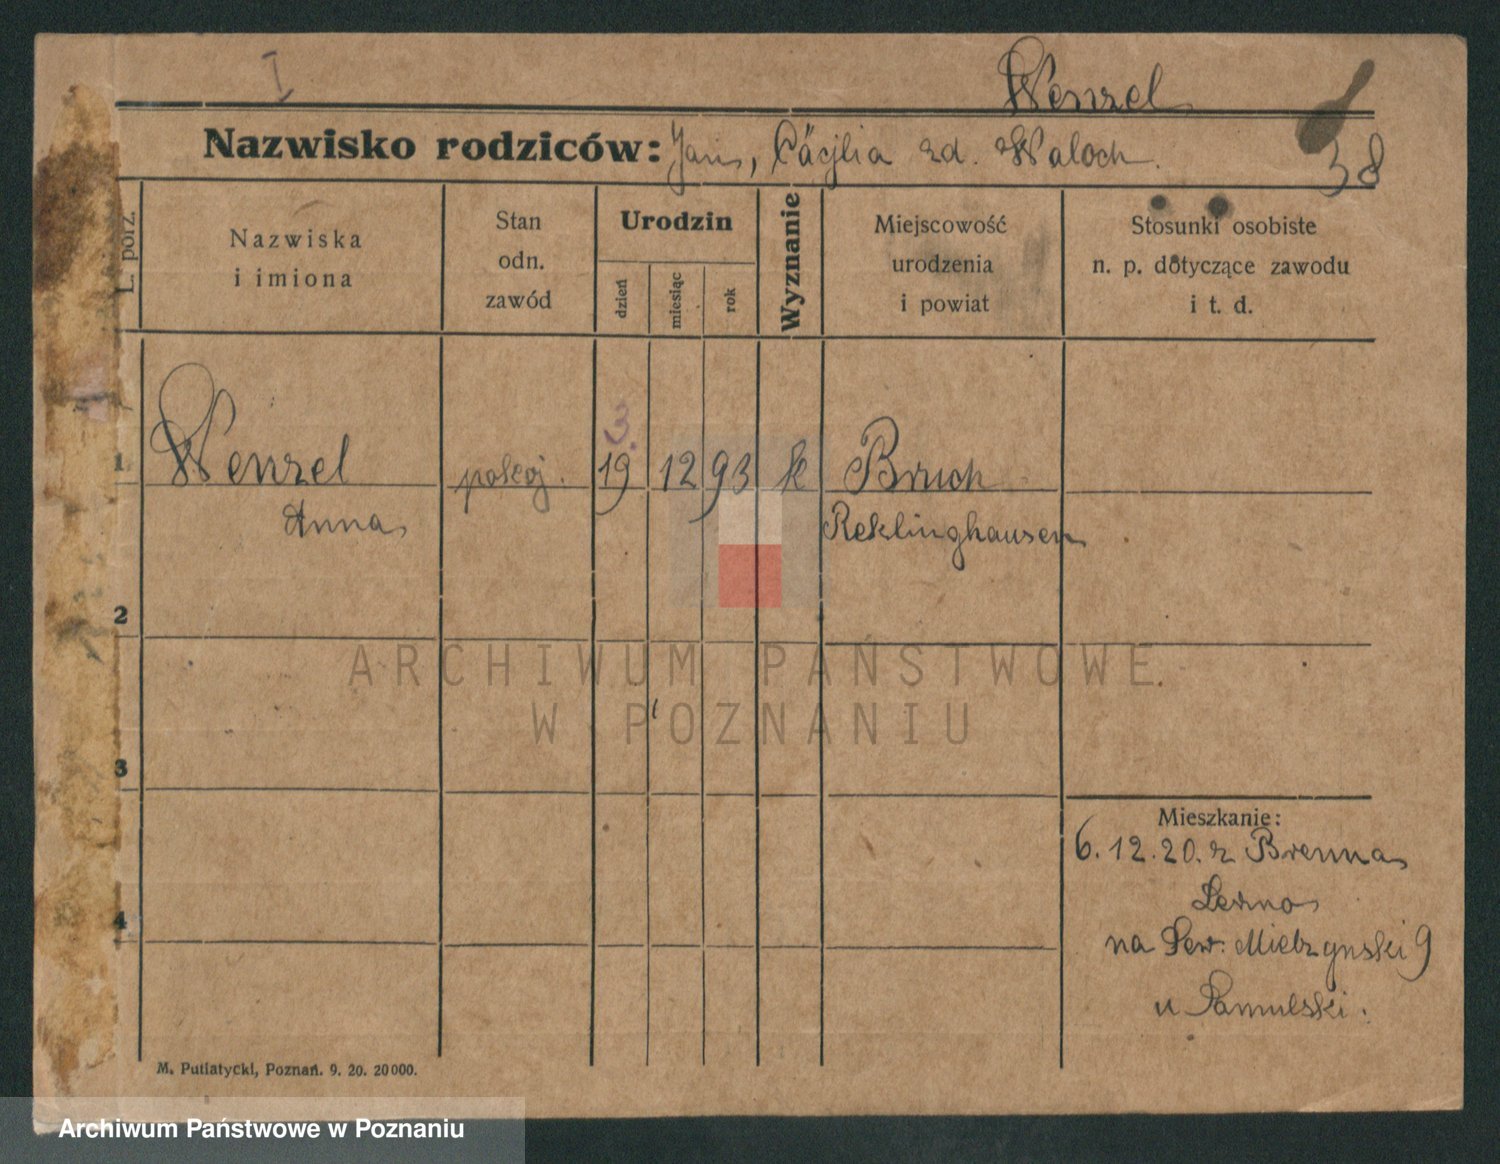 I
Wenzel
Nazwisko rodziców: Jan, Cäcjlia zd. Waloch.
38
L. porz.
Nazwiska
i imiona
Stan
odn.
zawód
Urodzin
dzień
miesiąc
rok
Wyznanie
Miejscowość
urodzenia
i powiat
Stosunki osobiste
n. p. dotyczące zawodu
i t. d.
1 Wenzel pokoj. 19 12 93 k Bruch
Anna Reklinghausen
2
3
4
Mieszkanie:
6.12.20. z Brenna
na Sew: Mielzynski 9
u
M. Putiatycki, Poznań. 9. 20. 20000.
ARCHIWUM PAŃSTWOWE
W POZNANIU
Archiwum Państwowe w Poznaniu